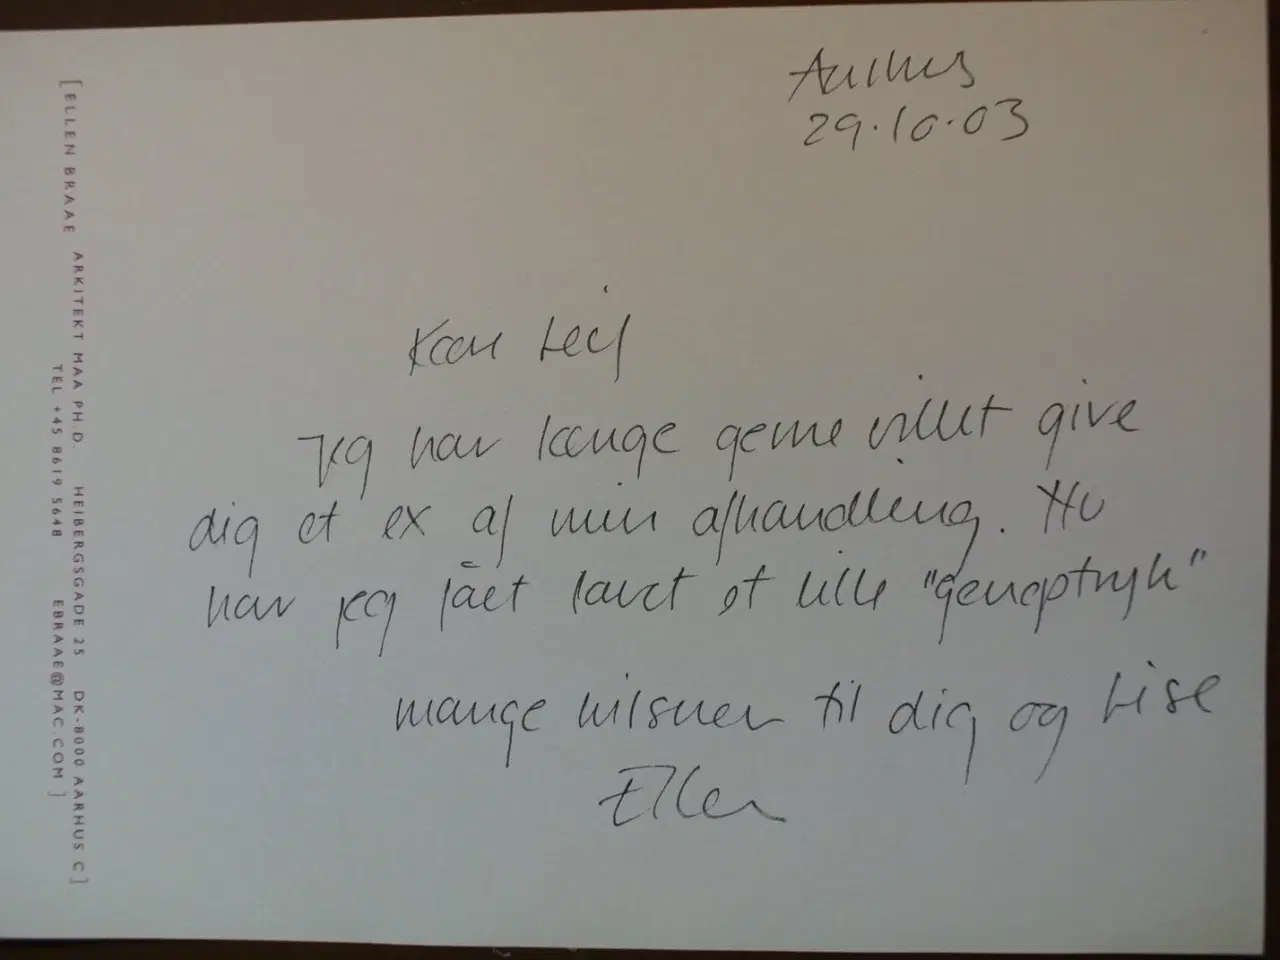 Aarhus
29.10.03
Kære Leif
Jeg har længe gerne villet give
dig et ex af min afhandling. Nu
har jeg fået lavet et lille "genoptryk"
mange hilsner til dig og Lise
Ellen
[ ELLEN BRAAE ARKITEKT MAA PH.D. HEIBERGSGADE 25 DK-8000 AARHUS C ]
TEL +45 8619 5648 EBRAAE@MAC.COM ]